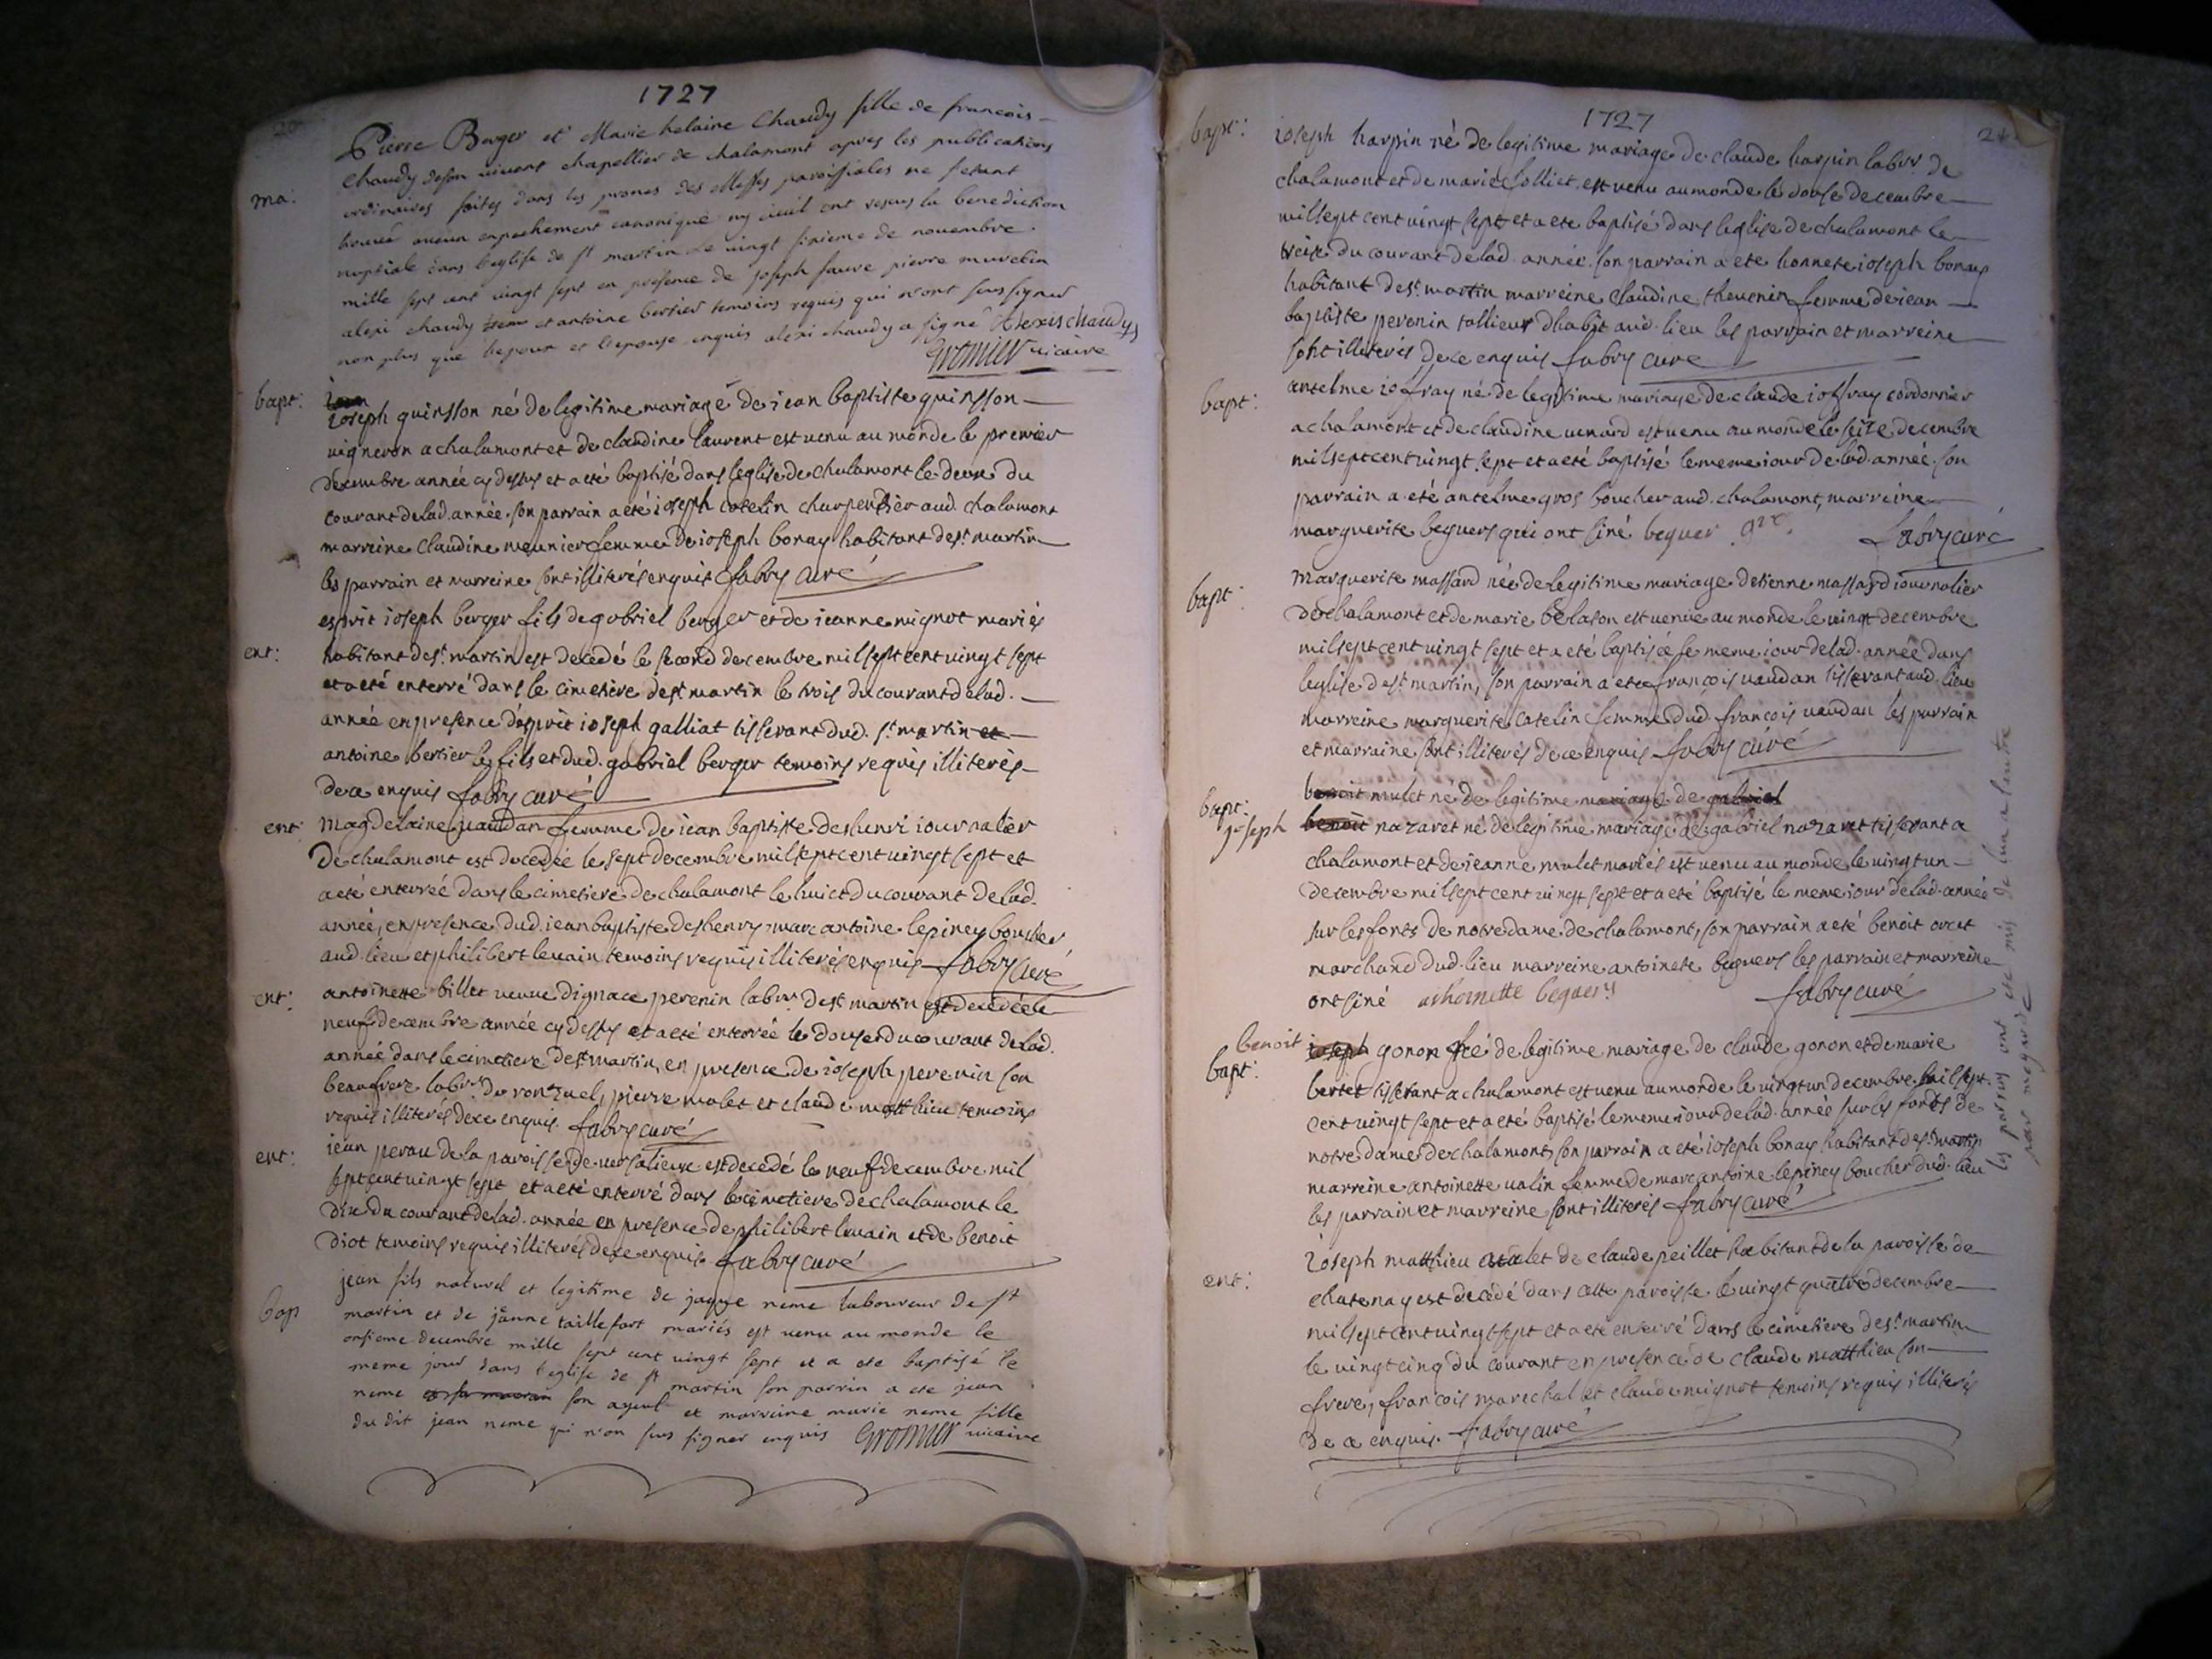 1727
Pierre Berger et Marie helaine Chaudy fille de francois
Chaudy deson vivant chapellier de chalamont apres les publications
ma: ordinaires faites dans les prones des Messes paroissiales ne setant
trouvé aucun enpechement canonique ny civil ont resus la benediction
nuptiale dans leglise de st martin Le vingt sixieme de novembre
mille sept cent vingt sept en presence de joseph favre pierre
alexi chaudy et antoine bertier temoins requis qui n'ont sus signer
non plus que lepoux et lepouse enquis alexi chaudy a signé Alexis chaudy
Gromier vicaire
bapt: ioseph quinsson né de legitime mariage de iean baptiste quinsson
vigneron a chalamont et de claudine laurent est venu au monde le premier
decembre année cy dessus et a eté baptisé dans leglise de chalamont le deux du
courant de lad. année. son parrain a eté ioseph catelin charpentier aud. chalamont
marreine claudine meunier femme de ioseph bonay habitant de st martin
les parrain et marreine sont illiterés enquis fabry curé
esprit ioseph berger fils de gabriel berger et de ieanne mignot mariés
ent: habitant de st martin est decedé le second decembre mil sept cent vingt sept
et a eté enterré dans le cimetiere de st martin le trois du courant de lad.
année en presence desprit ioseph galliat tisserant dud. st martin et
antoine bertier le fils et dud. gabriel berger temoins requis illiterés
de ce enquis fabry curé
ent: Magdelaine vaudan femme de iean baptiste deshenri iournalier
de chalamont est decedée le sept decembre mil sept cent vingt sept et
a eté enterrée dans le cimetiere de chalamont le huict du courant de lad.
année, en presence dud. iean baptiste deshenry, marc antoine lepiney boucher
aud. lieu et philibert levain temoins requis illiterés enquis fabry curé
ent: antoinette billet veuve dignace perenin labr de st martin est decedée le
neuf decembre année cy dessus et a eté enterrée le douse du courant de lad.
année dans le cimetiere de st martin, en presence de ioseph perenin son
beaufrere labr de ronzuel, pierre malet et claude matthieu temoins
requis illiterés de ce enquis. fabry curé
ent: iean perau de la paroisse de versalieux est decedé le neuf decembre mil
sept cent vingt sept et a eté enterré dans le cimetiere de chalamont le
dix du courant de lad. année en presence de philibert levain et de benoit
diot temoins requis illiterés de ce enquis. fabry curé
bap jean fils naturel et legitime de jaque neme laboureur de st
martin et de janne taillefort mariés est venu au monde le
onsieme decembre mille sept cent vingt sept et a ete baptisé le
meme jour dans leglise de st martin son parrin a ete jean
neme son ayeul et marreine marie neme fille
du dit jean neme qi n'on sus signer enquis Gromier vicaire
1727
bapt: ioseph harpin né de legitime mariage de claude harpin labr. de
chalamont et de marie jolliet est venu au monde le douse decembre
mil sept cent vingt sept et a ete baptisé dans leglise de chalamont le
treise du courant de lad. année. son parrain a ete honnete ioseph bonay
habitant de st. martin marreine claudine thevenin femme de iean
baptiste perenin tallieur dhabit aud. lieu les parrain et marreine
sont illiterés de ce enquis fabry curé
bapt: antelme ioffray né de legitime mariage de claude ioffray cordonnier
a chalamont et de claudine venard est venu au monde le seise decembre
mil sept cent vingt sept et a eté baptisé le meme iour de lad. année. son
parrain a eté antelme gros boucher aud. chalamont, marreine
marguerite beguers qui ont siné beguer fabry curé
bapt: Marguerite massard née de legitime mariage detienne massard iournalier
de chalamont et de marie belason est venue au monde le vingt decembre
mil sept cent vingt sept et a eté baptisée le meme iour de lad. année dans
leglise de st. martin, son parrain a ete françois vaudan tisserant aud. lieu
marreine marguerite catelin femme dud. françois vaudan les parrain
et marraine sont illiterés de ce enquis fabry curé
benoit mulet né de legitime mariage de gabriel
bapt: joseph benoit nazaret né de legitime mariage de gabriel nazaret tisserant a
chalamont et de ieanne mulet mariés est venu au monde le vingt un
decembre mil sept cent vingt sept et a eté baptisé le meme iour de lad. année
sur les fonts de notre dame de chalamont, son parrain a eté benoit orcet
marchand dud. lieu marreine antoinete beguers les parrain et marreine
ont siné anthoinette beguers fabry curé
bapt: benoit ioseph gonon né de legitime mariage de claude gonon et de marie
bertet tisserant a chalamont est venu au monde le vingt un decembre mil sept
cent vingt sept et a eté baptisé le meme iour de lad. année sur les fonts de
notre dame de chalamont, son parrain a eté ioseph bonay habitant de st martin
marreine antoinette valin femme de marc antoine lepiney boucher dud. lieu
les parrain et marreine sont illiterés fabry curé
ent: ioseph matthieu valet de claude peillet habitant de la paroisse de
chatenay est decedé dans cette paroisse le vingt quatre decembre
mil sept cent vingt sept et a ete enterré dans le cimetiere de st. martin
le vingt cinq du courant en presence de claude matthieu son
frere, francois marechal et claude mignot temoins requis illiterés
de ce enquis. fabry curé
les parrins ont ete mis de lun a lautre
par megarde